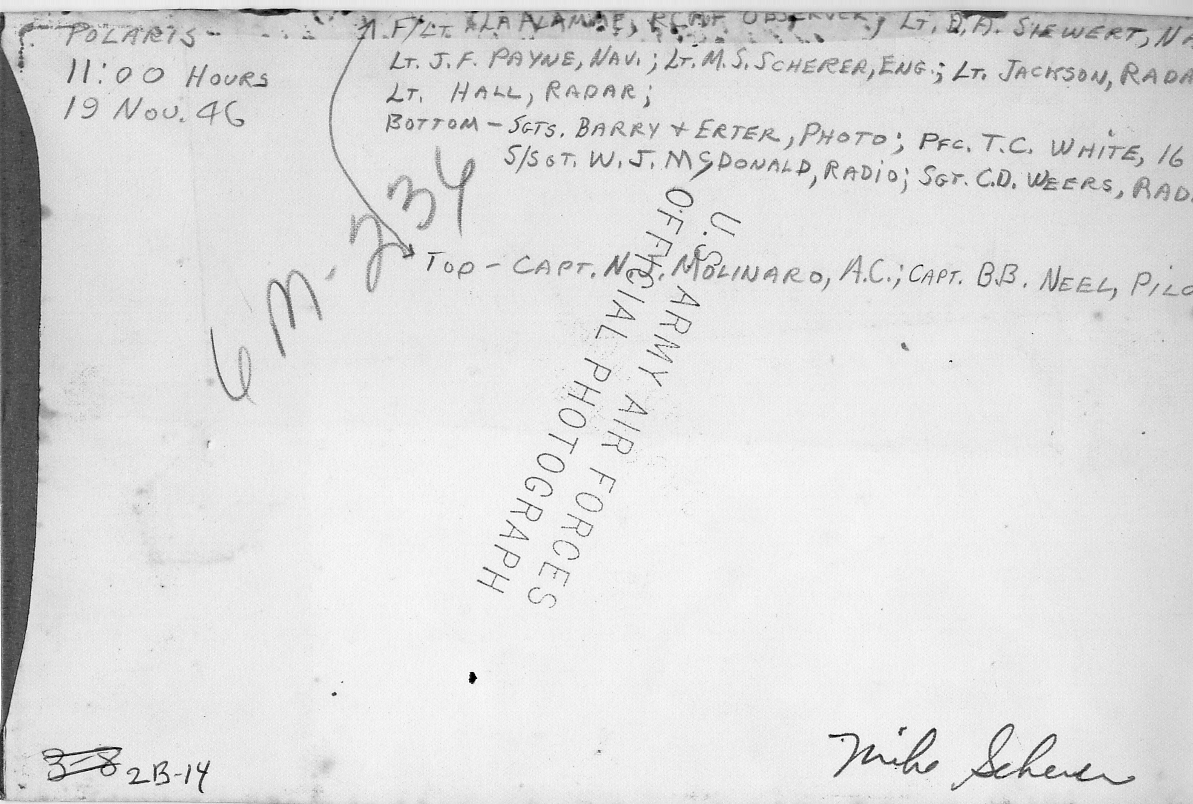 POLARIS-
11:00 HOURS
19 NOV. 46
F/LT. RCAF OBSERVER; LT. D.A. SIEWERT, NA
LT. J.F. PAYNE, NAV.; LT. M.S. SCHERER, ENG.; LT. JACKSON, RADA
LT. HALL, RADAR;
BOTTOM - SGTS. BARRY + ERTER, PHOTO; PFC. T.C. WHITE, 16
S/SGT. W.J. MCDONALD, RADIO; SGT. C.D. WEERS, RAD.
6M-234
TOP - CAPT. MOLINARO, A.C.; CAPT. B.B. NEEL, PILO
U.S. ARMY AIR FORCES
OFFICIAL PHOTOGRAPH
2B-14
Mike Scherer